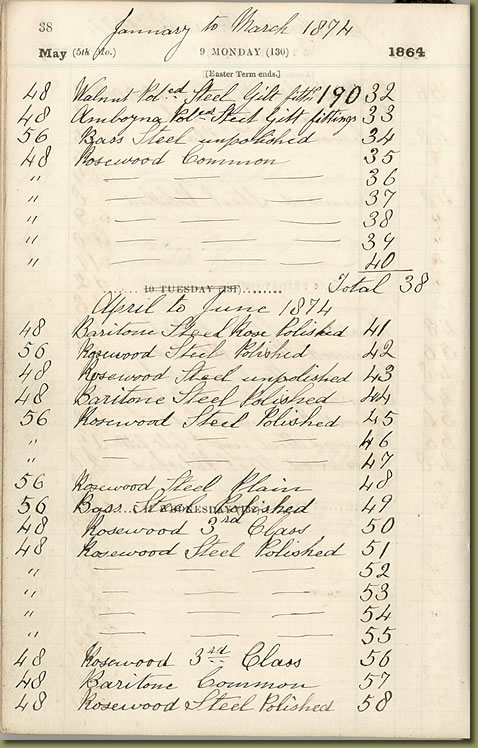 38 January to March 1874
May (5th Mo.) 9 MONDAY (130) 1864
[Easter Term ends.]
48 Walnut Pol.ed Steel Gilt fitt.s 190 32
48 Amboyna Pol.ed Steel Gilt fittings 33
56 Bass Steel unpolished 34
48 Rosewood Common 35
" — — — 36
" — — — 37
" — — — 38
" — — — 39
" — — — 40
10 TUESDAY (131) Total 38
April to June 1874
48 Baritone Steel Rose Polished 41
56 Rosewood Steel Polished 42
48 Rosewood Steel unpolished 43
48 Baritone Steel Polished 44
56 Rosewood Steel Polished 45
" — — — 46
" — — — 47
56 Rosewood Steel Plain 48
56 Bass Steel Polished 49
11 WEDNESDAY (132)
48 Rosewood 3rd Class 50
48 Rosewood Steel Polished 51
" — — — 52
" — — — 53
" — — — 54
" — — — 55
48 Rosewood 3rd Class 56
48 Baritone Common 57
48 Rosewood Steel Polished 58